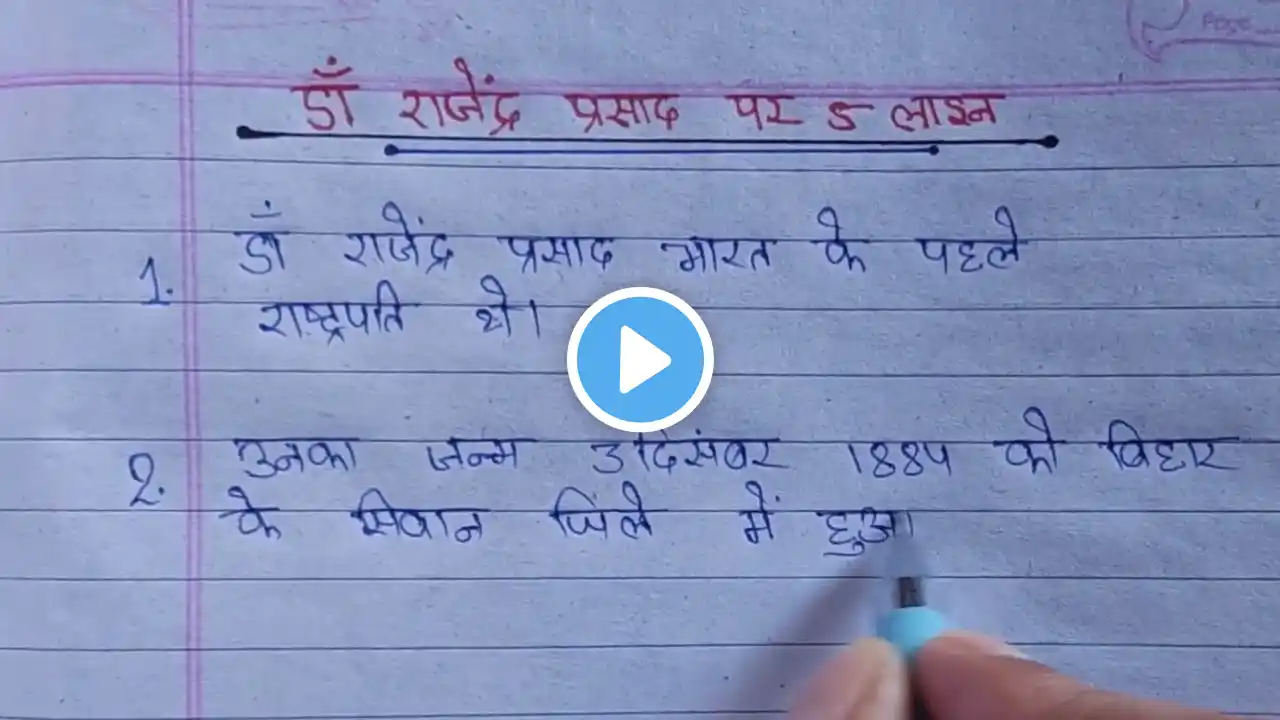 डॉं राजेंद्र प्रसाद पर 5 लाइन
1. डॉं राजेंद्र प्रसाद भारत के पहले
राष्ट्रपति थे।
2. उनका जन्म 3 दिसंबर 1884 को बिहार
के सिवान जिले में हुआ